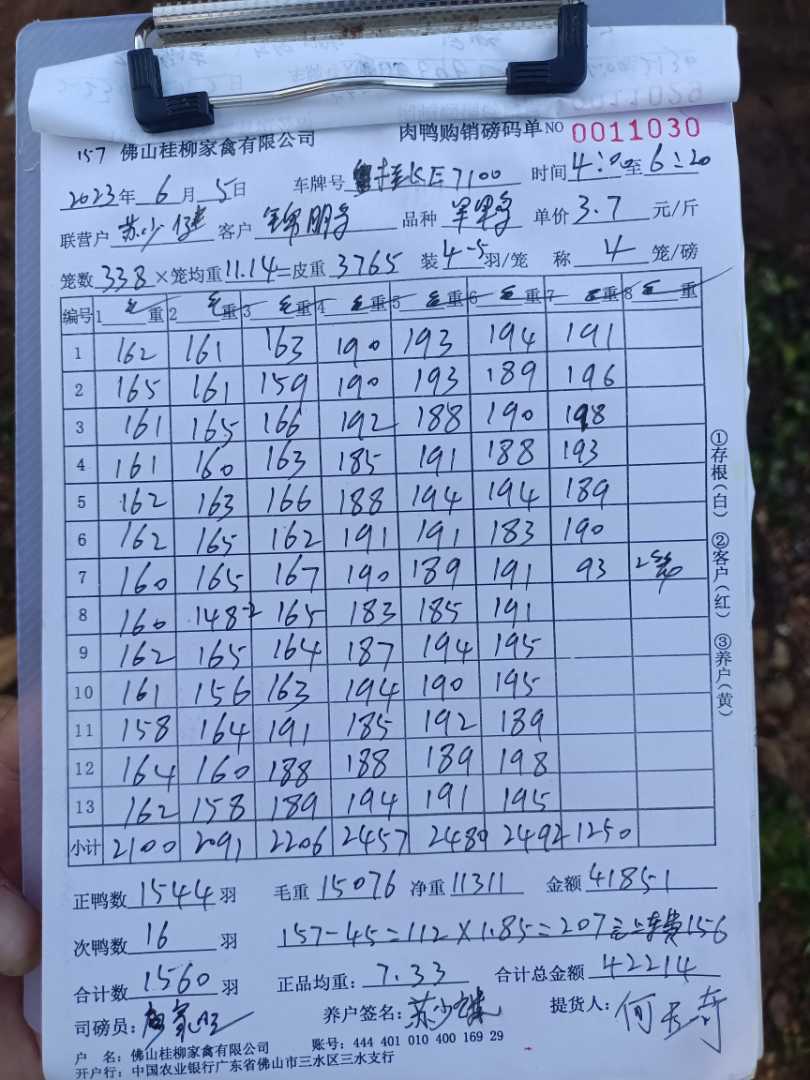 肉鸭购销磅码单 NO 0011030
157 佛山桂柳家禽有限公司
2023年 6 月 5 日 车牌号 E7100 时间 4:00 至 6:20
联营户 苏少 客户 锦朋 品种 单价 3.7 元/斤
笼数 338 ×笼均重 11.14 =皮重 3765 装 4-5 羽/笼 称 4 笼/磅
编号 1 毛重 2 毛重 3 毛重 4 毛重 5 毛重 6 毛重 7 毛重 8 毛重
1 162 161 163 190 193 194 191
2 165 161 159 190 193 189 196
3 161 165 166 192 188 190 198
4 161 160 163 185 191 188 193
5 162 163 166 188 194 194 189
6 162 165 162 191 191 183 190
7 160 165 167 190 189 191 93
8 160 148-2 165 183 185 191
9 162 165 164 187 194 195
10 161 156 163 194 190 195
11 158 164 191 185 192 189
12 164 160 188 188 189 198
13 162 158 189 194 191 195
小计 2100 2091 2206 2457 2480 2492 1250
正鸭数 1544 羽 毛重 15076 净重 11311 金额 41851
次鸭数 16 羽 157-45=112×1.85=207元 车费156
合计数 1560 羽 正品均重: 7.33 合计总金额 42214
司磅员: 养户签名: 苏少 提货人: 何
户 名: 佛山桂柳家禽有限公司 账号: 444 401 010 400 169 29
开户行: 中国农业银行广东省佛山市三水区三水支行
①存根(白) ②客户(红) ③养户(黄)